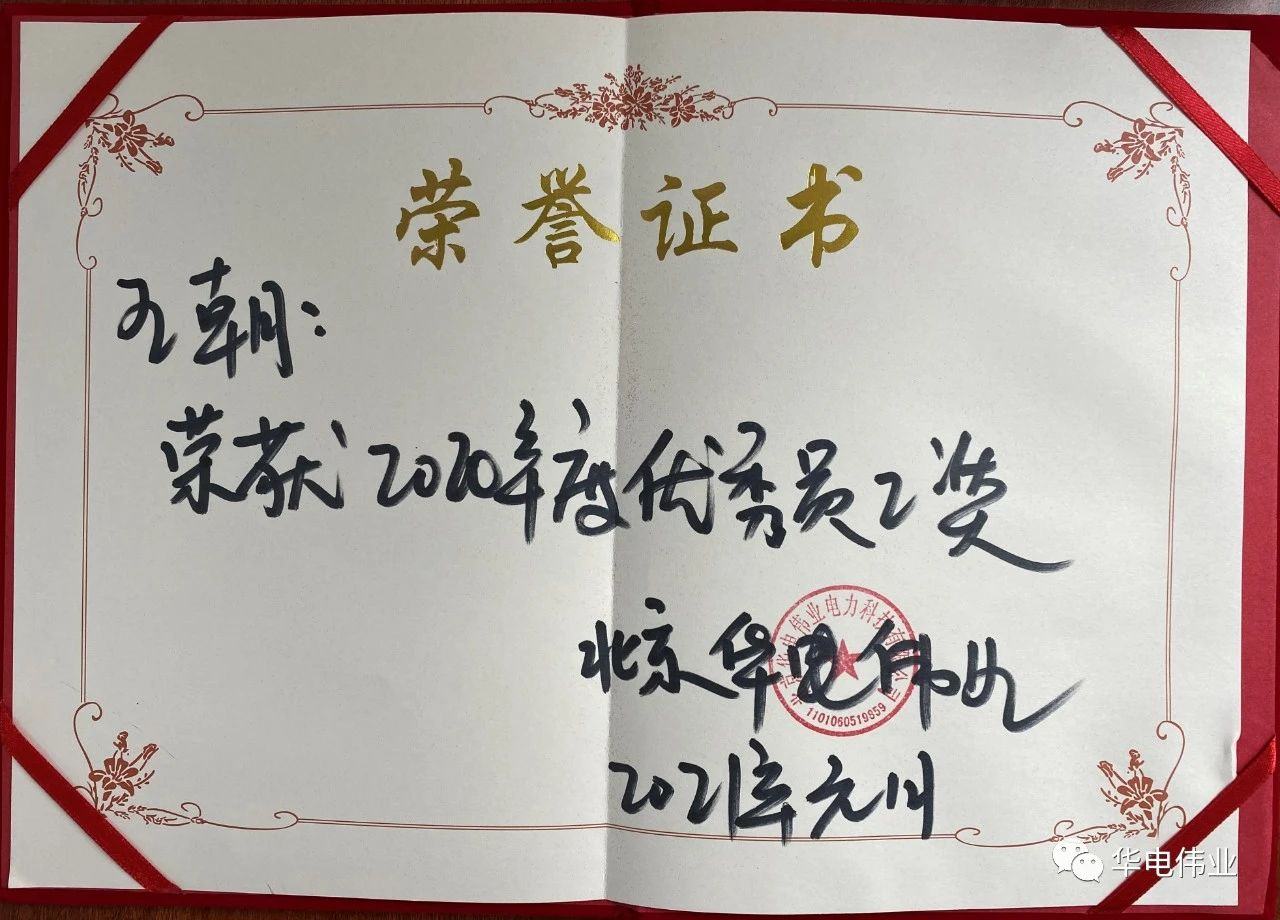 荣誉证书
王朝:
荣获2020年度优秀员工奖
北京华电伟业电力科技有限公司
1101060519859
北京华电伟业
2021年元月
华电伟业